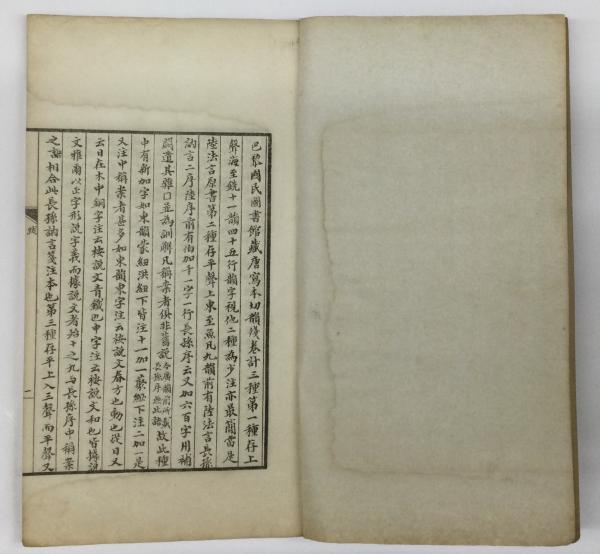 巴黎國民圖書館藏唐寫本切韻殘卷計三種第一種存上
聲海至銑十一韻四十五行韻字視他二種為少注亦最簡當是
陸法言原書第二種存平聲上東至魚凡九韻前有陸法言長孫
訥言二序陸序前有伯加千一字一行長孫序云又加六百字用補
闕遺其雜口並為訓解凡稱案者俱非舊說今廣韻前所載長孫序無此語故此種
中有新加字如東韻蒙紐洪紐下皆注十一加一叢紐下注二加一是
又注中稱案者甚多如東韻東字注云按說文春方也動也從日又
云日在木中銅字注云按說文青鐵也中字注云按說文和也皆據說
文雅爾以正字形說字義而據說文者始十之九与長孫序中稱案
之語相合此長孫訥言箋注本也第三種存平上入三聲而平聲又
一